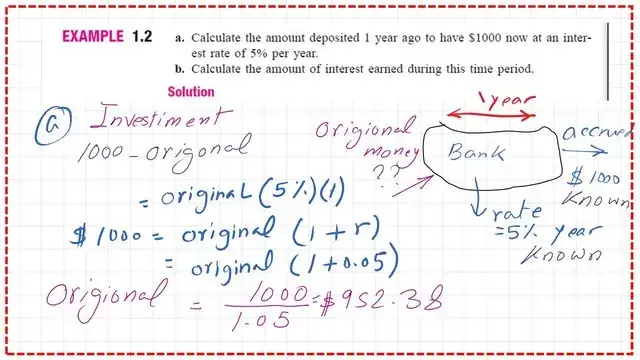 EXAMPLE 1.2
a. Calculate the amount deposited 1 year ago to have $1000 now at an inter-
est rate of 5% per year.
b. Calculate the amount of interest earned during this time period.
Solution
a
Investiment
1000 - origonal
= original (5%)(1)
$1000 = original (1+r)
= original (1+0.05)
Origional = 1000
1.05
= $952.38
1 year
Origional
money
??
Bank
accrued
$1000
Known
rate
=5% year
Known